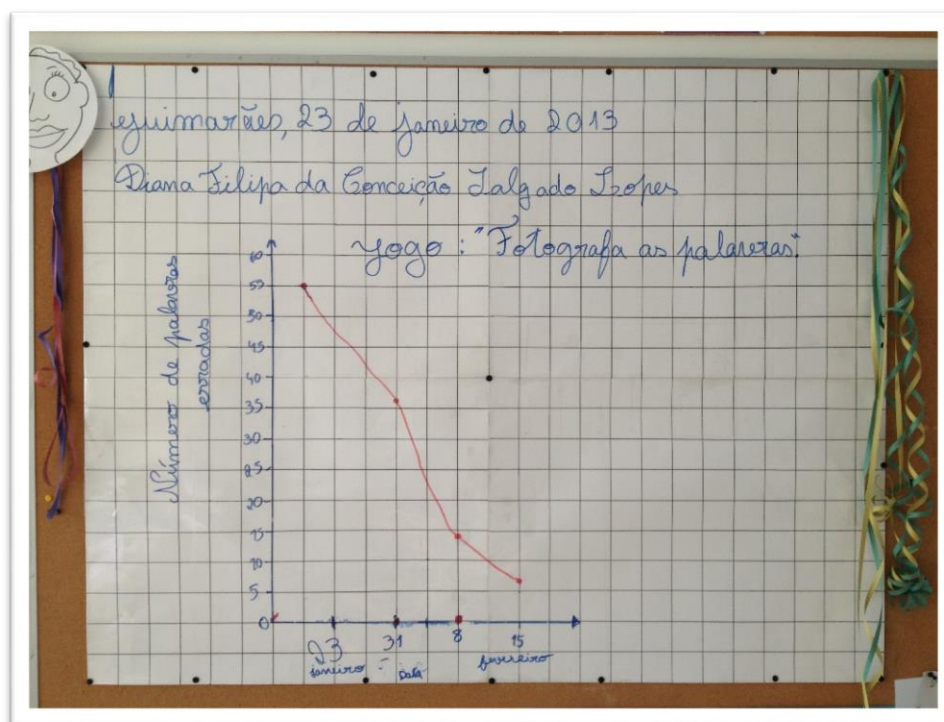 Guimarães, 23 de janeiro de 2013
Diana Filipa da Conceição Salgado Lopes
Jogo: "Fotografa as palavras".
Número de palavras
erradas
60
55
50
45
40
35
30
25
20
15
10
5
0
23 31 8 15
janeiro - Data fevereiro